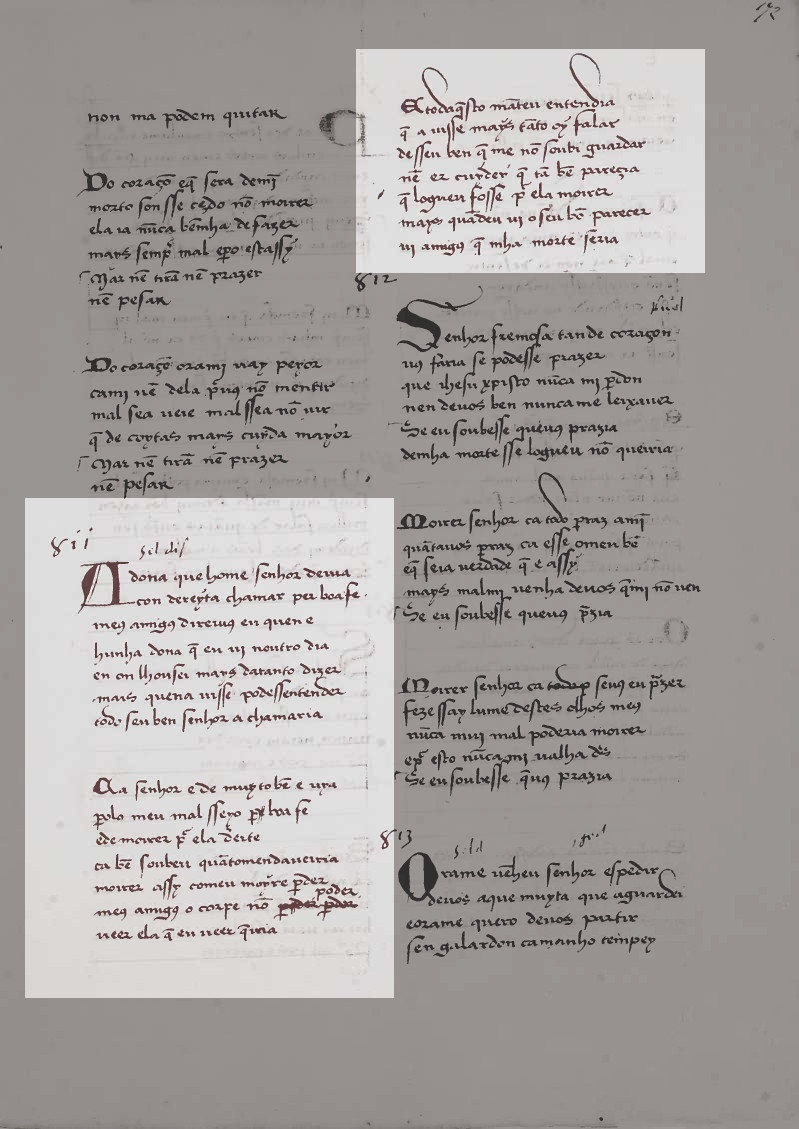 non ma podem quitar
Do coraçõ eq̃ sera demĩ
morto son sse cedo nõ moirer
ela ia nũca bẽ mha defazer
mays semp̃ mal epo estassy
Mar nẽ tirã nẽ prazer
nẽ pesar
Do coraçõ orami vay peyor
cami vẽ dela p̃uuꝯ nõ mentir
mal sea veie mal ssea nõ vir
q̃ de coytas mays cuyda mayor
Mar nẽ tirã nẽ prazer
nẽ pesar
811
A dona que home senhor deuia
con dereyta chamar per boa fe
meuꝯ amigꝯ direiuꝯ eu quen e
hunha dona q̃ eu ui noutro dia
en on lhousei mays datanto dizer
mais quena uisse podessentender
todo seu ben senhor a chamaria
Ca senhor e de muyto bẽ e uya
polo meu mal sseyo per boa fe
ede moirer p̃ ela
ca bẽ soubeu quãtomendaueiria
moirer assy comeu moyre perder
poder
meꝯ amigꝯ o corpe nõ
ueer ela q̃ eu ueer q̃iria
172
E todaq̃sto mãteu entendia
q̃ a uisse mays tãto oy falar
desseu ben q̃ me nõ soubi guardar
nẽ er cuyder q̃ tã bẽ pareçia
q̃ logueu fosse p̃ ela moirer
mays quãdeu ui o seu bẽ parecer
ui amigꝯ q̃ mha morte seria
812
Senhor fremosa tan de coraçon
uꝯ faria se podesse prazer
que ihesu xpisto nũca mi p̃don
nen deuos ben nunca me leixauer
Se eu soubesse queuꝯ prazia
demha morte sse logueu nõ queiria
Moirer senhor ca todo praz amĩ
quãtauos praz ca esse omen bẽ
eq̃ seia uerdade q̃ e assy
mays mal mi uenha deuos q̃mi nõ uen
Se eu soubesse queuꝯ p̃zia
Moirer senhor ca todo p seuꝯ eu p̃zer
feze ssay lume destes olhos meꝯ
nũca mui mal poderia moirer
ep̃ esto nũca mi ualha dẽs
Se eu soubesse q̃uꝯ prazia
813
Orame uẽheu senhor espedir
deuos aque muyta que aguardei
eorame quero deuos partir
sen galardon camanho tempey